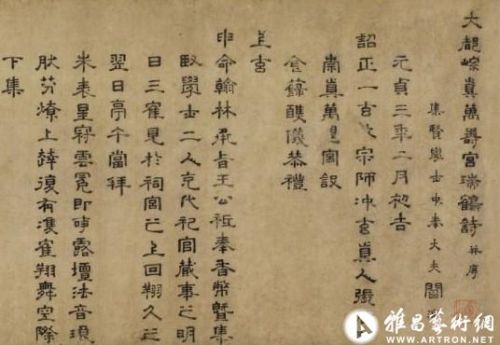 大都崇真萬壽宮瑞鶴詩 并序
集賢學士中奉大夫閻
元貞三年二月初吉
詔正一玄教宗師沖玄真人張
崇真萬壽宮設
金籙醮儀恭禮
上玄
申命翰林承旨王公祗奉香幣暨集
賢學士二人充代祠官蕆事之明
日三鶴見於祠宮之上回翔久之
翌日亭午當拜
朱表星冠雲冕即事露壇法音琅
肰芬燎上達復有雙鶴翔舞空際
下集
雅昌藝術網
WWW.ARTRON.NET